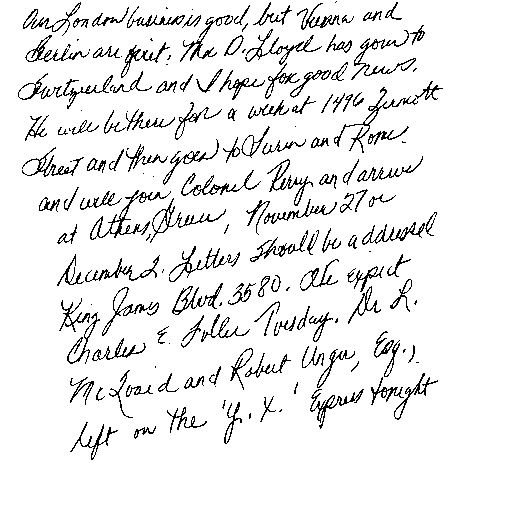 Our London business is good, but Vienna and
Berlin are quiet. Mr. D. Lloyd has gone to
Switzerland and I hope for good news.
He will be there for a week at 1496 Zermott
Street and then goes to Turin and Rome
and will join Colonel Perry and arrive
at Athens, Greece, November 27 or
December 2. Letters should be addressed
King James Blvd. 3580. We expect
Charles E. Fuller Tuesday. Dr. L.
McQuaid and Robert Unger, Esq.,
left on the 'Y. X.' Express tonight